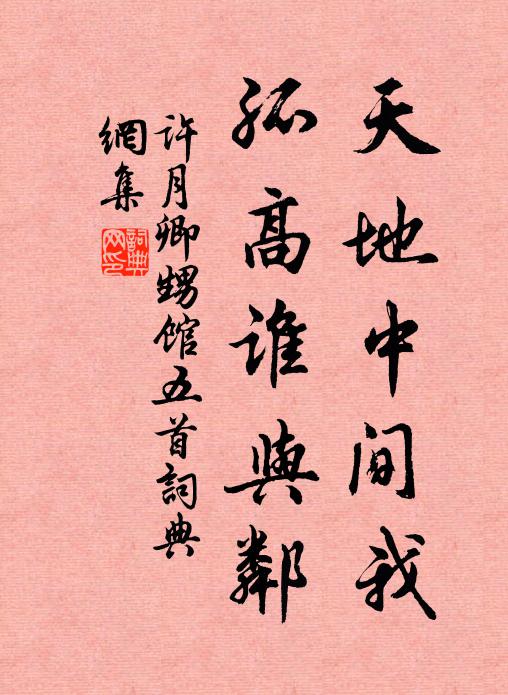 天地中間我
孤高誰與鄰
許月卿甥館五首詞典
網集
詞典
網印